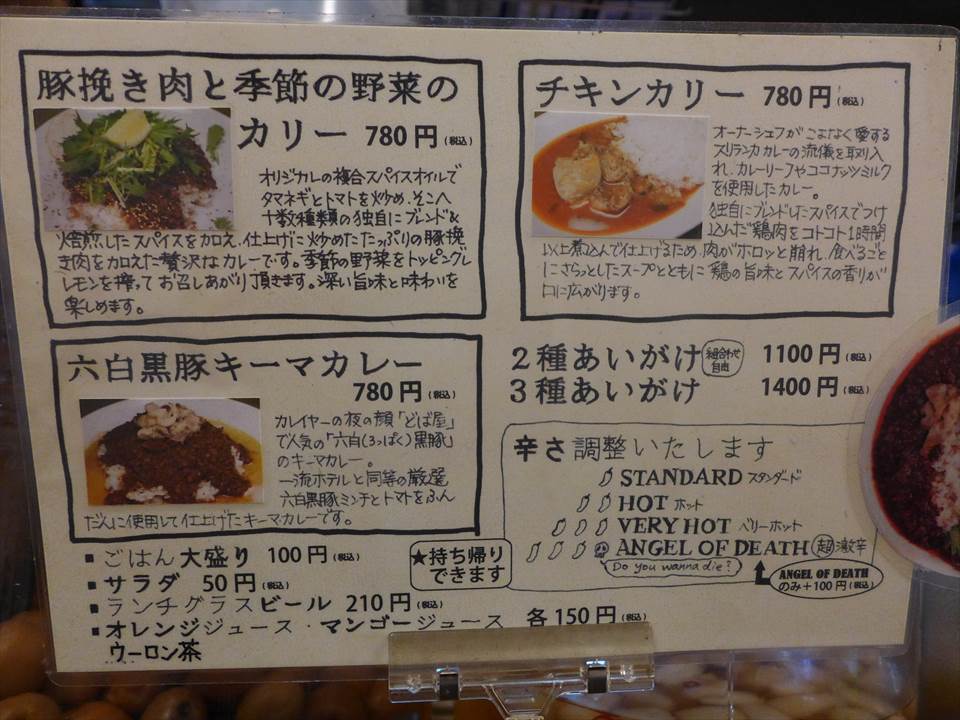 豚挽き肉と季節の野菜の
カリー 780円(税込)
オリジナルの複合スパイスオイルで
タマネギとトマトを炒め、そこへ
十数種類の独自にブレンド&
焙煎したスパイスを加え、仕上げに炒めたたっぷりの豚挽
き肉を加えた贅沢なカレーです。季節の野菜をトッピングし
レモンを搾って お召しあがり頂きます。深い旨味と味わいを
楽しめます。
チキンカリー 780円(税込)
オーナーシェフがこよなく愛する
スリランカカレーの流儀を取り入
れ、カレーリーフやココナッツミルク
を使用したカレー。
独自にブレンドしたスパイスでつけ
込んだ鶏肉をコトコト1時間
以上煮込んで仕上げるため、肉がホロッと崩れ、食べるごと
にさらっとしたスープとともに鶏の旨味とスパイスの香りが
口に広がります。
六白黒豚キーマカレー
780円(税込)
カレイヤーの夜の顔「どば屋」
で人気の「六白(ろっぱく)黒豚」
のキーマカレー。
一流ホテルと同等の厳選
六白黒豚ミンチとトマトをふん
だんに使用して仕上げたキーマカレーです。
2種あいがけ 組合わせ自由 1100円(税込)
3種あいがけ 1400円(税込)
辛さ調整いたします
STANDARD スタンダード
HOT ホット
VERY HOT ベリーホット
ANGEL OF DEATH 超激辛
Do you wanna die?
ANGEL OF DEATH
のみ+100円(税込)
■ごはん大盛り 100円(税込)
■サラダ 50円(税込)
■ランチグラスビール 210円(税込)
■オレンジジュース・マンゴージュース 各150円(税込)
ウーロン茶
★持ち帰り
できます